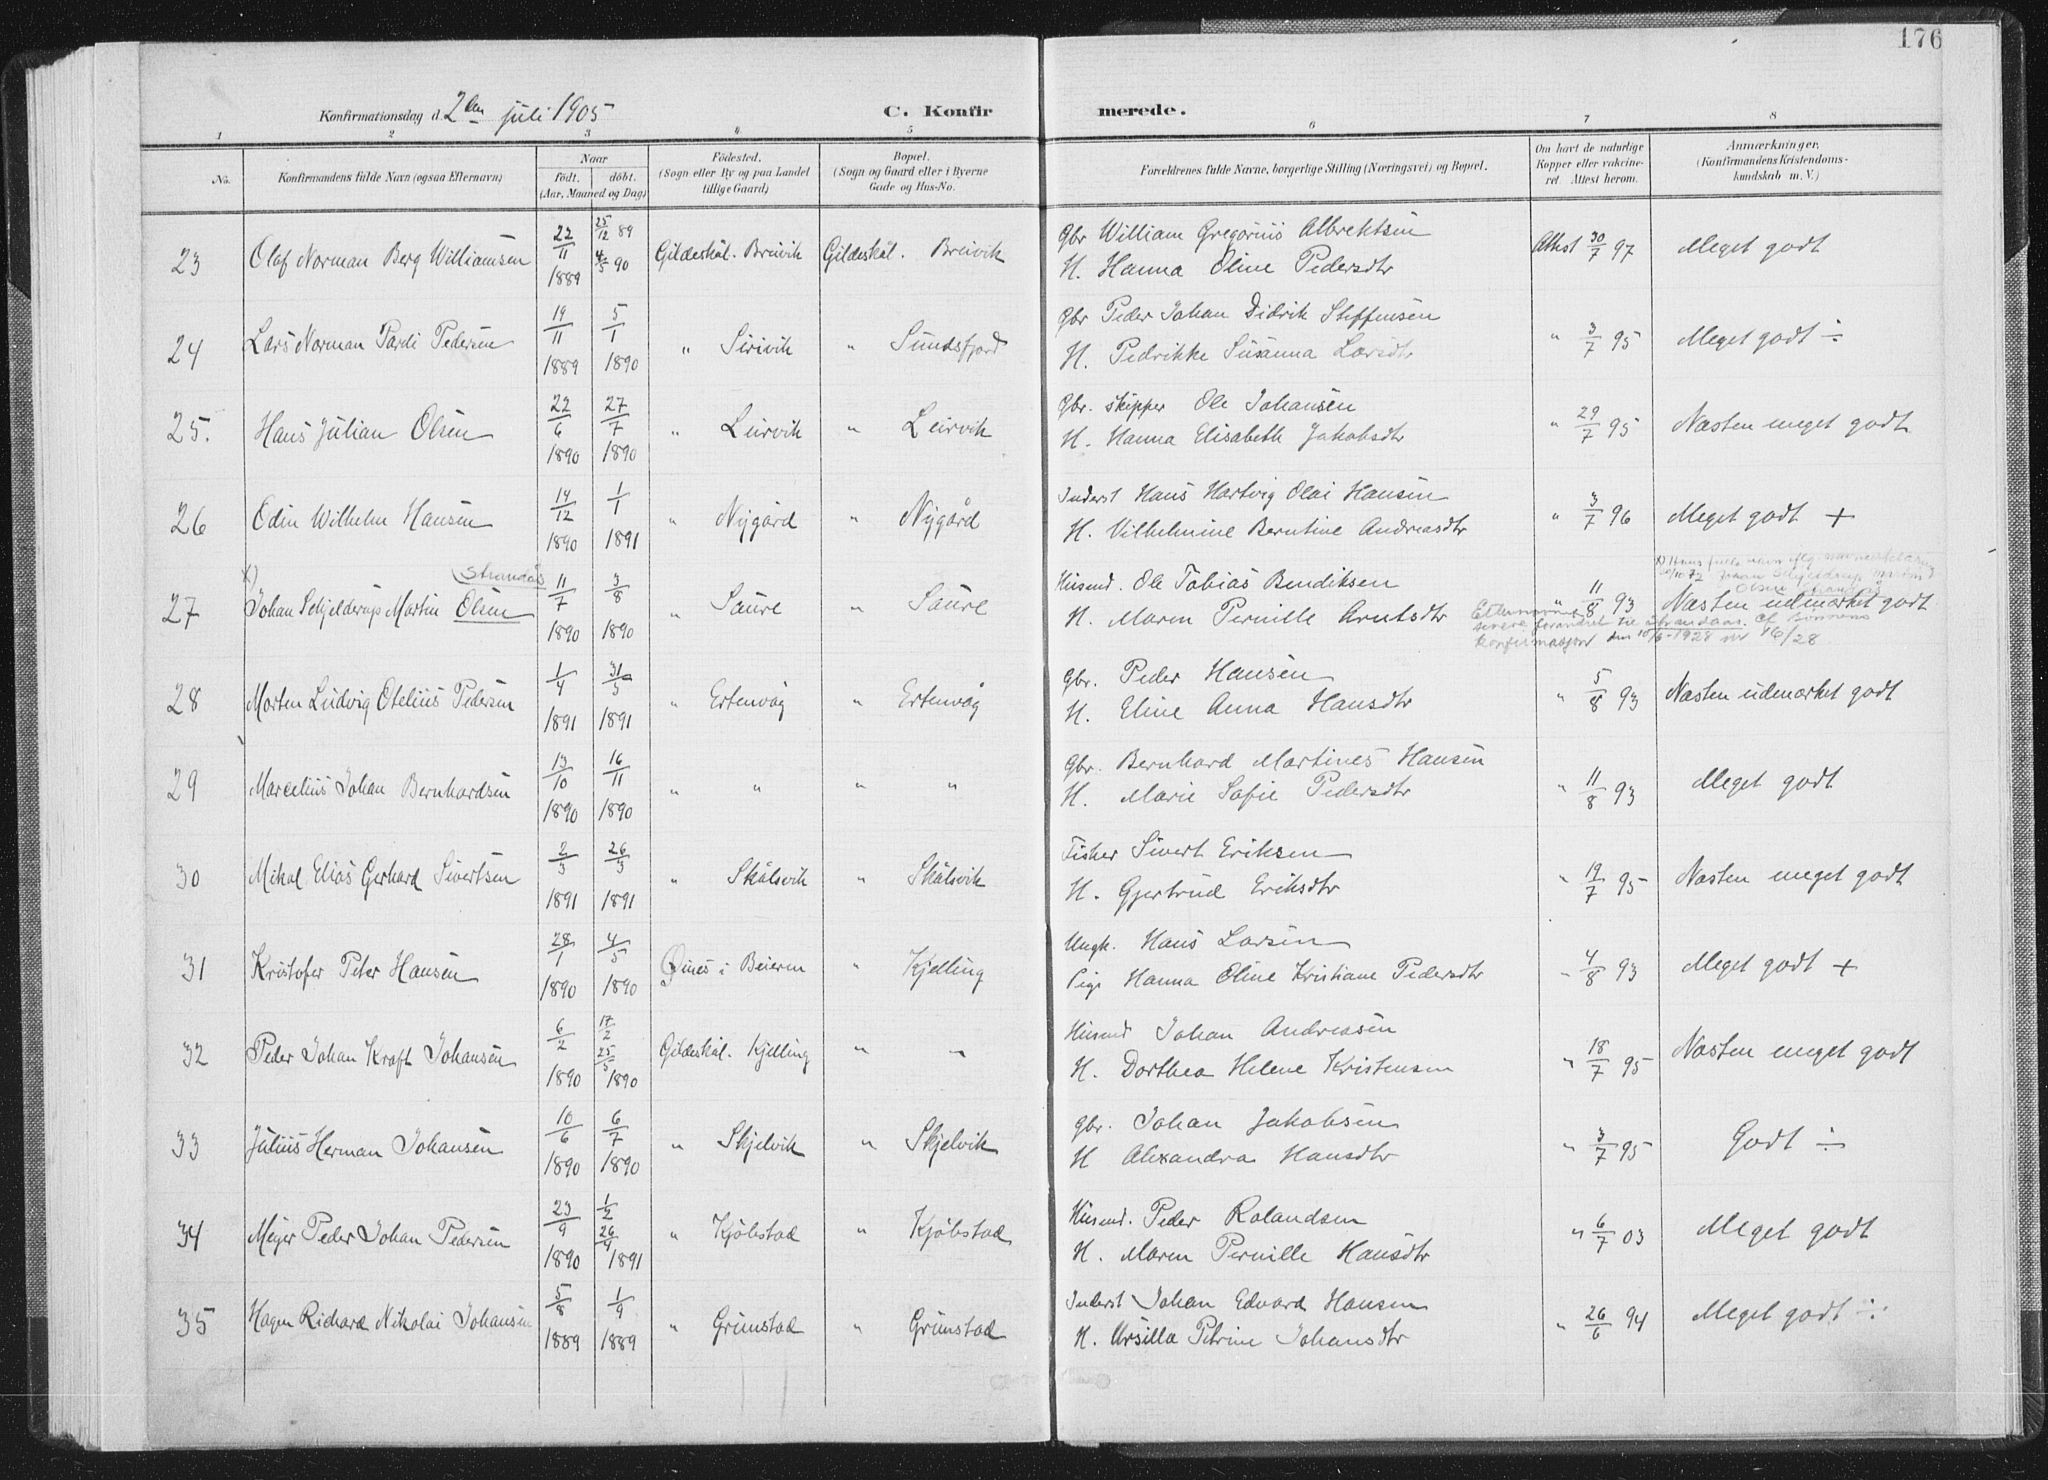 176
Konfirmationsdag d. 2den juli 1905
C. Konfirmerede.
1 2 3 4 5 6 7 8
No.
Konfirmandens fulde Navn (ogsaa Efternavn)
Naar
födt. döbt.
(Aar, Maaned og Dag)
Födested.
(Sogn eller By og paa Landet
tillige Gaard)
Bopæl.
(Sogn og Gaard eller i Byerne
Gade og Hus-No.
Forældrenes fulde Navne, borgerlige Stilling (Næringsvei) og Bopæl.
Om havt de naturlige
Kopper eller vakcine-
ret. Attest herom.
Anmærkninger.
(Konfirmandens Kristendoms-
kundskab m. V.)
23 Olaf Norman Berg Williamsen 22/11 1889 25/12 89 4/5 90 Gildeskål. Breivik Gildeskål. Breivik
Gbr William Gregorius Albrektsen
H. Hanna Oline Pedersdtr
Attest 30/7 97 Meget godt
24 Lars Norman Pardi Pedersen 19/11 1889 5/1 1890 " Sirivik " Sundsfjord
Gbr Peder Johan Didrik Steffensen
H. Pedrikke Susanna Larsdtr
" 3/7 95 Meget godt ÷
25. Hans Julian Olsen 22/6 1890 27/7 1890 " Leirvik " Leirvik
Gbr. skipper Ole Johansen
H. Hanna Elisabeth Jakobsdtr
" 29/7 95 Næsten meget godt
26 Odin Wilhelm Hansen 14/12 1890 1/1 1891 " Nygård " Nygård
Inderst Hans Hartvig Olai Hansen
H. Vilhelmine Berntine Andreasdtr
" 3/7 96 Meget godt +
x) Strandås
27 Johan Schjelderup Martin Olsen 11/7 1890 3/8 1890 " Saure " Saure
Husmd. Ole Tobias Bendiksen
H. Maren Pernille Arntsdtr
" 11/8 93 Næsten udmærket godt
x) Hans fulle navn iflg.
Johan Schjelderup Martin
Olsen Strandås
Etternavnet
senere forandret til Strandaas. Cf Sønnens
konfirmasjon den 10/6-1928 nr 16/28
28 Morten Ludvig Otelius Pedersen 1/4 1891 31/5 1891 " Ertenvåg " Ertenvåg
Gbr. Peder Hansen
H. Eline Anna Hansdtr
" 5/8 93 Næsten udmærket godt
29 Marcelius Johan Bernhardsen 13/10 1890 16/11 1890 " " " "
Gbr. Bernhard Martines Hansen
H. Marie Sofie Pedersdtr
" 11/8 93 Meget godt
30 Mikal Elias Gerhard Sivertsen 2/3 1891 26/3 1891 " Skålsvik " Skålsvik
Fisker Sivert Eriksen
H. Gjertrud Eriksdtr
" 19/7 95 Næsten meget godt
31 Kristofer Peter Hansen 28/1 1890 4/5 1890 Øines i Beieren " Kjelling
Ungk. Hans Larsen
Pige Hanna Oline Kristiane Pedersdtr
" 4/8 93 Meget godt +
32 Peder Johan Kraft Johansen 6/2 1890 17/2 25/5 1890 Gildeskål. Kjelling " "
Husmd Johan Andreasen
H. Dorthea Helene Kristensen
" 18/7 95 Næsten meget godt
33 Julius Herman Johansen 10/6 1890 6/7 1890 " Skjelvik " Skjelvik
Gbr. Johan Jakobsen
H Alexandra Hansdtr
" 3/7 95 Godt ÷
34 Meyer Peder Johan Pedersen 23/9 1890 1/2 26/4 1891 " Kjöbstad " Kjöbstad
Husmd. Peder Rolandsen
H. Maren Pernille Hansdtr
" 6/7 03 Meget godt
35 Hagen Richard Nikolai Johansen 5/8 1889 1/9 1889 " Grimstad " Grimstad
Inderst Johan Edvard Hansen
H. Ursilla Petrine Johansdtr
" 26/6 94 Meget godt ÷